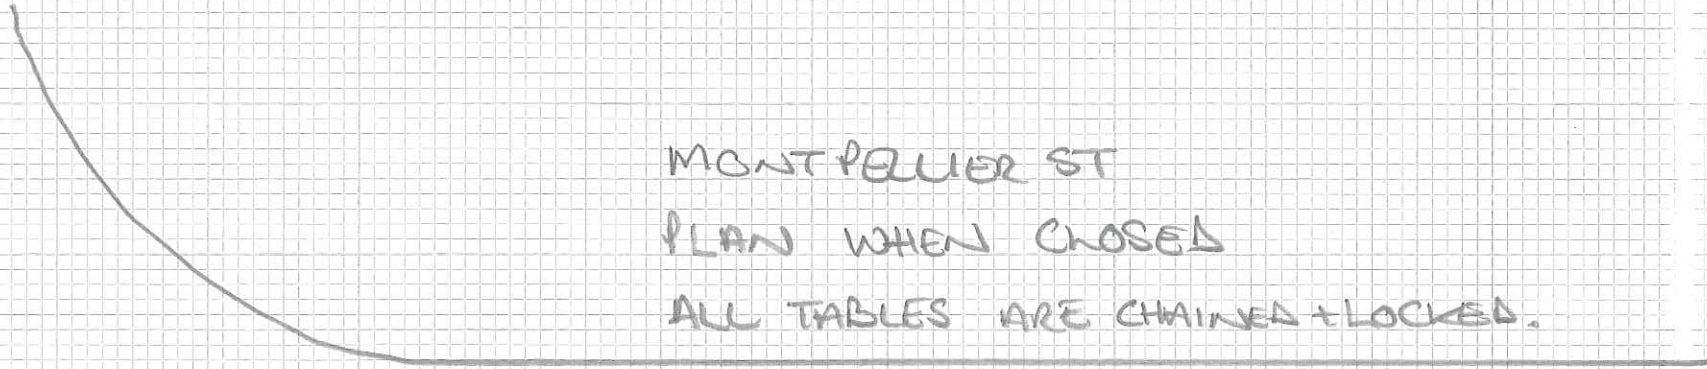 MONTPELLIER ST
PLAN WHEN CLOSED
ALL TABLES ARE CHAINED + LOCKED.